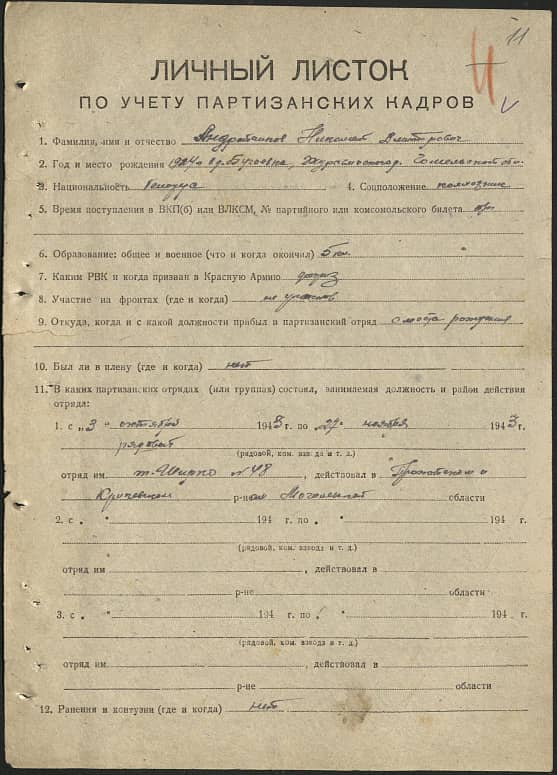 11
ЛИЧНЫЙ ЛИСТОК
ПО УЧЕТУ ПАРТИЗАНСКИХ КАДРОВ
1. Фамилия, имя и отчество Николай Дмитрович
2. Год и место рождения 1924 Гомельской
3. Национальность 4. Соцположение колхозник
5. Время поступления в ВКП(б) или ВЛКСМ, № партийного или комсомольского билета
6. Образование: общее и военное (что и когда окончил) 5 кл.
7. Каким РВК и когда призван в Красную Армию
8. Участие на фронтах (где и когда) не
9. Откуда, когда и с какой должности прибыл в партизанский отряд с места рождения
10. Был ли в плену (где и когда) нет
11. В каких партизанских отрядах (или группах) состоял, занимаемая должность и район действия
отряда:
1. с „3 " октября 1943 г. по „27" ноября 1943 г.
рядовой
(рядовой, ком. взвода и т. д.)
отряд им т. Ширко N 48 , действовал в
р-не области
2. с „ " 194 г. по „ " 194 г.
(рядовой, ком. взвода и т. д.)
отряд им , действовал в
р-не области
3. с „ " 194 г. по „ " 194 г.
(рядовой, ком. взвода и т. д.)
отряд им , действовал в
р-не области
12. Ранения и контузии (где и когда) нет